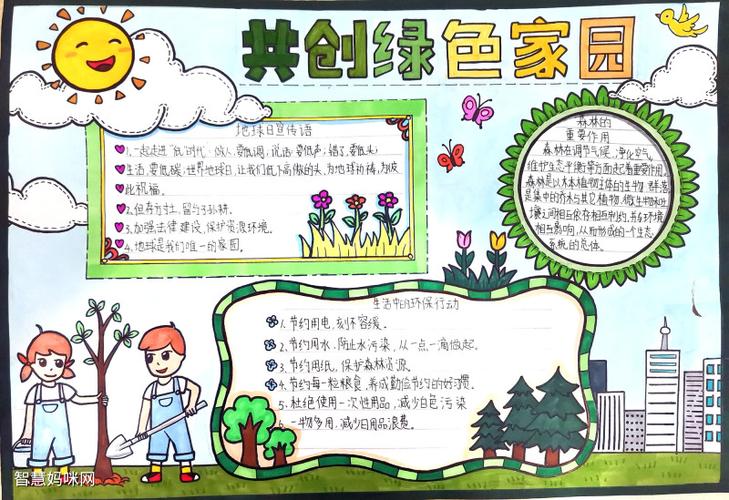 共创绿色家园
地球日宣传语
1.一起走进"低"时代:做人,要低调,说话,要低声;错了,要低头;
生活,要低碳;世界地球日,让我们低下高傲的头,为地球祈祷,为彼
此祝福。
2.但存方寸土,留与子孙耕。
3.加强法律建设,保护资源环境。
4.地球是我们唯一的家园。
森林的
重要作用
森林在调节气候,净化空气,
维护生态平衡等方面起着重要作用。
森林是以木本植物为主体的生物群落,
是集中的乔木与其它植物、微生物和土
壤之间相互依存相互制约,并与环境
相互影响,从而形成的一个生态
系统的总体。
生活中的环保行动
1.节约用电,刻不容缓。
2.节约用水,防止水污染,从一点一滴做起。
3.节约用纸,保护森林资源。
4.节约每一粒粮食,养成勤俭节约的好习惯。
5.杜绝使用一次性用品,减少白色污染
6.一物多用,减少日用品浪费。
智慧妈咪网